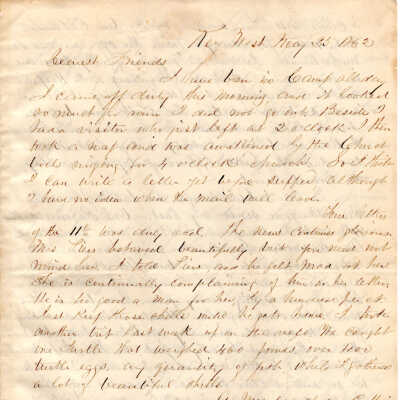 Key West May 25 1862
Dearest Friends
I have ben in Camp all day
I came off duty this morning and it looked
so much like rain I did not go out. Beside I
had a visitor who just left at 2 o'clock I then
took a nap and was awakened by the Church
bells ringing for 4 o'clock church. So I think
I can write a letter yet before supper although
I have no idea when the mail will leave.
Your letter
of the 11th was duly recd. The news continues glorious
Mrs behaved beautifully but you need not
mind her. I told and he felt mad at her
She is continually complaining of him in her letters
He is too good a man for her, by a hundred per ct
Just keep those until he gets home. I took
another trip last week up on the reefs. We caught
one turtle that weighed 460 pounds, over 1000
turtle eggs, any quantity of fish while I gathered
a lot of beautiful shells.